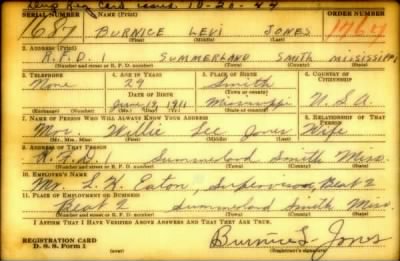 Dup Reg Card issued 10-20-44
SERIAL NUMBER 1. NAME (Print) ORDER NUMBER
1687 BURNICE LEVI JONES 1767
(First) (Middle) (Last)
2. ADDRESS (Print)
R.F.D. SUMMERLAND SMITH MISSISSIPPI
(Number and street or R. F. D. number) (Town) (County) (State)
3. TELEPHONE 4. AGE IN YEARS 5. PLACE OF BIRTH 6. COUNTRY OF CITIZENSHIP
None 29 Smith
DATE OF BIRTH (Town or county)
June 19, 1911 Mississippi U.S.A.
(Exchange) (Number) (Mo.) (Day) (Yr.) (State or country)
7. NAME OF PERSON WHO WILL ALWAYS KNOW YOUR ADDRESS 8. RELATIONSHIP OF THAT PERSON
Mrs. Willie Lee Jones Wife
(Mr., Mrs., Miss) (First) (Middle) (Last)
9. ADDRESS OF THAT PERSON
R.F.D. 1 Summerland Smith Miss.
(Number and street or R. F. D. number) (Town) (County) (State)
10. EMPLOYER'S NAME
Mr. L. H. Eaton, Supervisor, Beat 2
11. PLACE OF EMPLOYMENT OR BUSINESS
Beat 2 Summerland Smith Miss.
(Number and street or R. F. D. number) (Town) (County) (State)
I AFFIRM THAT I HAVE VERIFIED ABOVE ANSWERS AND THAT THEY ARE TRUE.
REGISTRATION CARD
D. S. S. Form 1
Burnice L. Jones
(Registrant's signature)